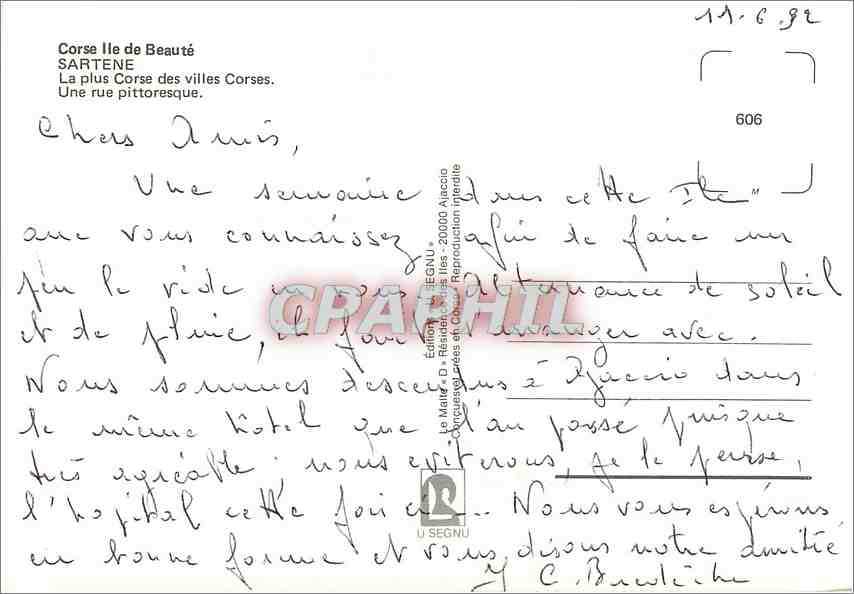 11.6.92
Corse Ile de Beauté
SARTENE
La plus Corse des villes Corses.
Une rue pittoresque.
606
Chers Amis,
Une semaine dans cette Ile
que vous connaissez afin de faire un
peu le vide en nous. Alternance de soleil
et de pluie, il faut s'arranger avec.
Nous sommes descendus à Ajaccio dans
le même hôtel que l'an passé puisque
très agréable ; nous éviterons, je le pense,
l'hopital cette fois ci... Nous vous espérons
en bonne forme et vous disons notre amitié
Editions « U SEGNU »
Le Malte « D » Résidence des Iles - 20000 Ajaccio
Conçues et créées en Corse - Reproduction interdite
U SEGNU
CPAPHIL